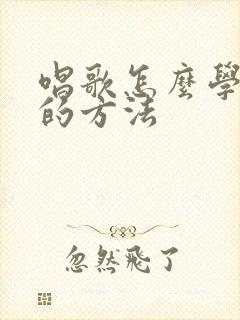 唱歌怎麼學
的方法
忽然飛了